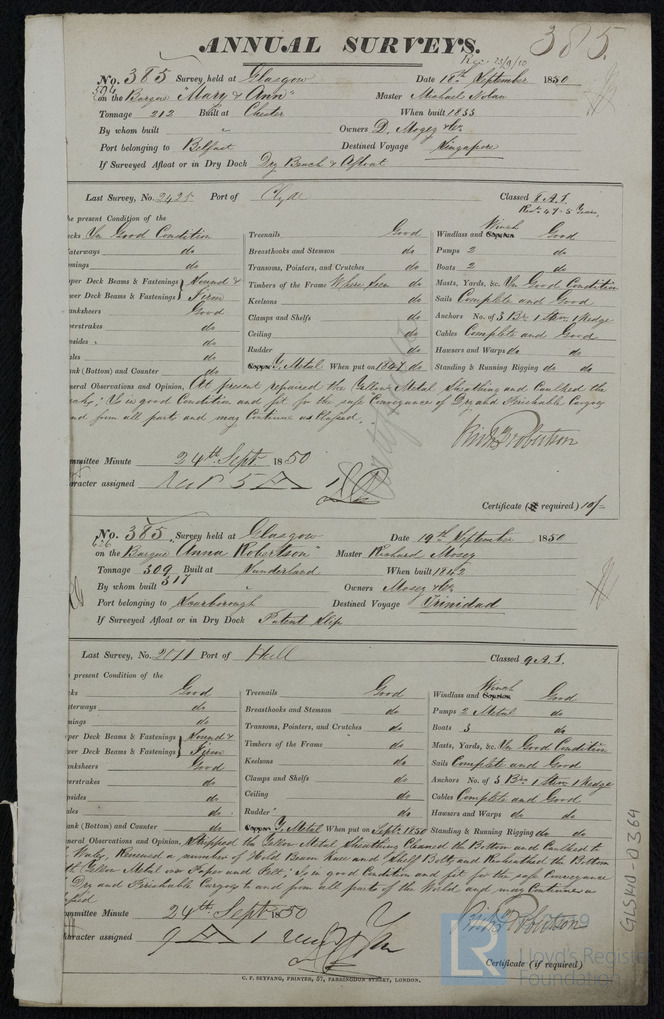 ANNUAL SURVEYS.
385.
Rec 23/9/50
No. 385 Survey held at Glasgow Date 18th September 1850
on the Barque "Mary & Ann" Master Michael Nolan
Tonnage 212 Built at Chester When built 1833
By whom built " Owners D. Mogey & Co.
Port belonging to Belfast Destined Voyage Singapore
If Surveyed Afloat or in Dry Dock Dry Beach & Afloat
Last Survey, No. 2425 Port of Clyde Classed
he present Condition of the
cks In Good Condition
aterways do
mings do
per Deck Beams & Fastenings } Sound &
wer Deck Beams & Fastenings } Firm
anksheers Good
perstrakes do
psides do
ales do
ank (Bottom) and Counter do
Treenails Good
Breasthooks and Stemson do
Transoms, Pointers, and Crutches do
Timbers of the Frame Where Seen do
Keelsons do
Clamps and Shelfs do
Ceiling do
Rudder do
Y. Metal When put on 1847 do
Windlass and Winch Good
Pumps 2 do
Boats 2 do
Masts, Yards, &c. In Good Condition
Sails Complete and Good
Anchors No. of 3 Br. 1 Strm. 1 Kedge
Cables Complete and Good
Hawsers and Warps do do
Standing & Running Rigging do do
neral Observations and Opinion, At present repaired the Yellow Metal Sheathing and Caulked the
Is in good Condition and fit for the safe Conveyance of Dry and Perishable Cargoes
and from all parts and may Continue as Classed.
Robertson
mmittee Minute 24th Sept 1850
aracter assigned
Certificate ( required) 10/-
No. 385. Survey held at Glasgow Date 19th September 1850
on the Barque "Anna Robertson" Master Richard Mosey
Tonnage 309 317 Built at Sunderland When built 1842
By whom built " Owners Mosey & Co.
Port belonging to Scarborough Destined Voyage Trinidad
If Surveyed Afloat or in Dry Dock Patent Slip
Last Survey, No. 2011 Port of Hull Classed 9 A 1.
present Condition of the
cks Good
terways do
mings do
per Deck Beams & Fastenings } Sound &
wer Deck Beams & Fastenings } Firm
anksheers Good
perstrakes do
psides do
ales do
ank (Bottom) and Counter do
Treenails Good
Breasthooks and Stemson do
Transoms, Pointers, and Crutches do
Timbers of the Frame do
Keelsons do
Clamps and Shelfs do
Ceiling do
Rudder do
Y. Metal When put on Sept. 1850
Windlass and Winch Good
Pumps 2 Metal do
Boats 3 do
Masts, Yards, &c. In Good Condition
Sails Complete and Good
Anchors No. of 3 Br. 1 Strm. 1 Kedge
Cables Complete and Good
Hawsers and Warps do do
Standing & Running Rigging do do
neral Observations and Opinion, Stripped the Yellow Metal Sheathing Cleaned the Bottom and Caulked to
Wales, Renewed a number of Hold Beam Knee and Shelf Bolts and Resheathed the Bottom
th Yellow Metal over Paper and Felt; Is in good Condition and fit for the safe Conveyance
Dry and Perishable Cargoes to and from all parts of the World and may Continue as
Robertson
mmittee Minute 24th Sept 1850
aracter assigned 9 A 1
Certificate (if required)
C. F. SEYFANG, PRINTER, 57, FARRINGDON STREET, LONDON.
GLSHU-0364
LR
Lloyd's Register
Foundation